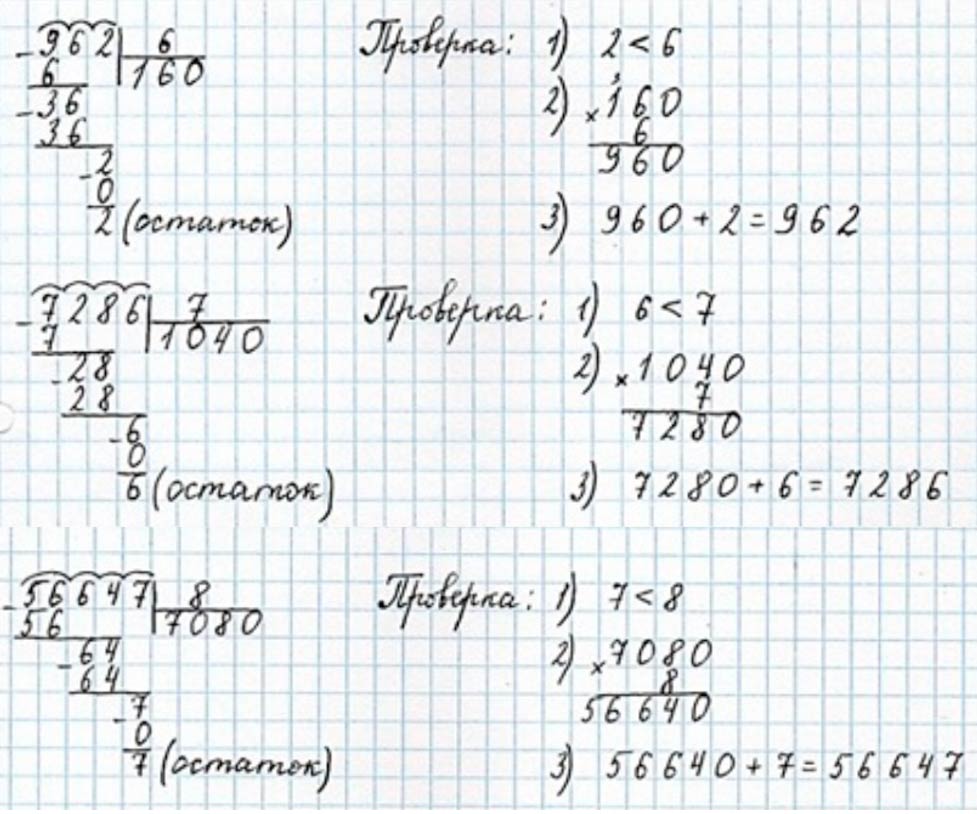 - 962 | 6
6 | 160
- 36
36
- 2
0
2 (остаток)
Проверка: 1) 2 < 6
2) × 160
6
960
3) 960 + 2 = 962
- 7286 | 7
7 | 1040
- 28
28
- 6
0
6 (остаток)
Проверка: 1) 6 < 7
2) × 1040
7
7280
3) 7280 + 6 = 7286
- 56647 | 8
56 | 7080
- 64
64
- 7
0
7 (остаток)
Проверка: 1) 7 < 8
2) × 7080
8
56640
3) 56640 + 7 = 56647